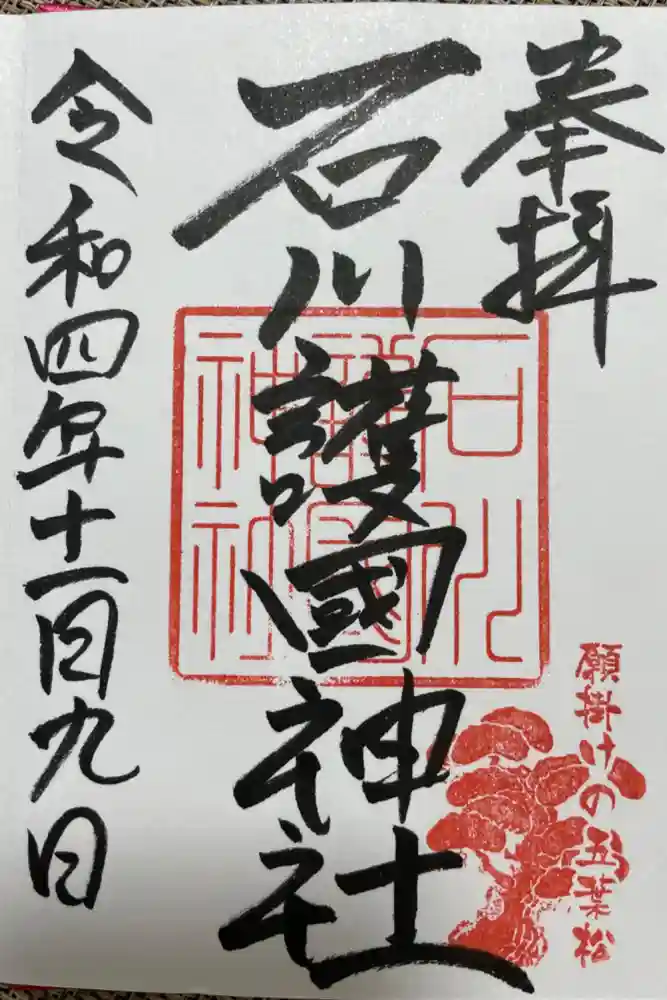 奉拝
石川護國神社
令和四年十一月九日
石川護國神社
願掛けの五葉松